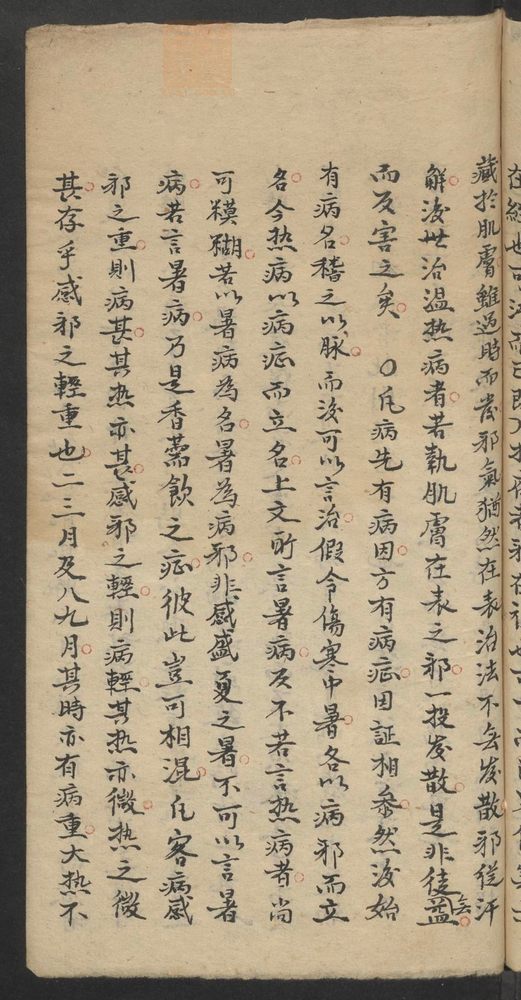 藏於肌膚雖過時而發邪氣猶然在表治法不无發散邪從汗
解後世治温热病者若執肌膚在表之邪一投發散是非徒无益
而反害之矣 〇凡病先有病因方有病症因証相叅然後始
有病名稽之以脉而後可以言治假令傷寒中暑各以病邪而立
名今热病以病症而立名上文所言暑病反不若言热病者尚
可糢糊若以暑病為名暑為病邪非感盛夏之暑不可以言暑
病若言暑病乃是香薷飲之症彼此豈可相混凡客病感
邪之重則病甚其热亦甚感邪之輕則病輕其热亦微热之微
甚存乎感邪之輕重也二三月及八九月其時亦有病重大热不